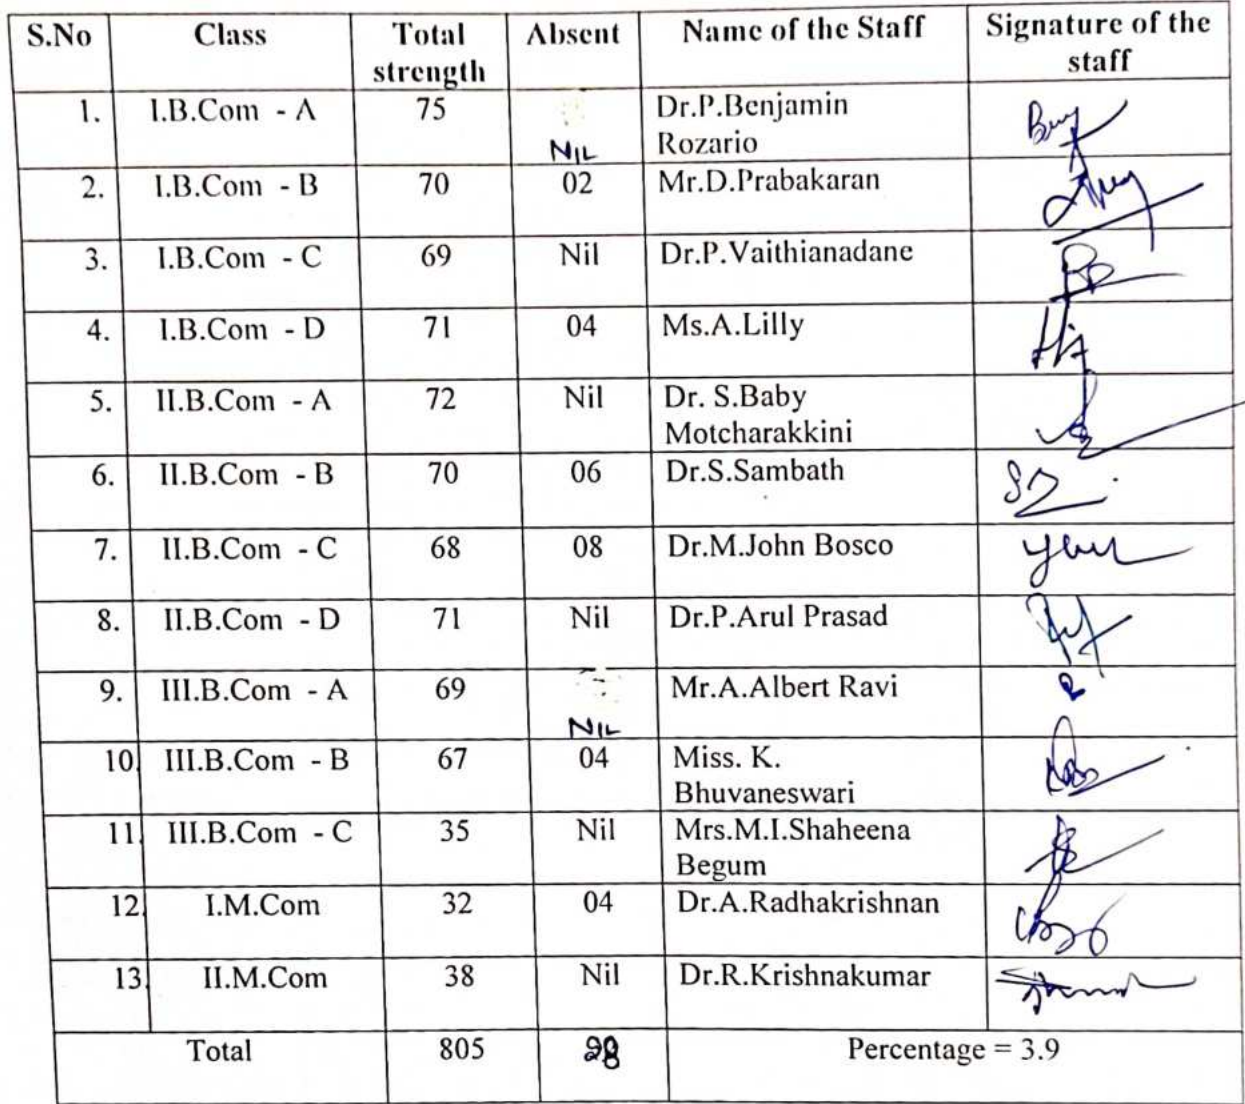 S.No Class Total strength Absent Name of the Staff Signature of the staff
1. I.B.Com - A 75 NIL Dr.P.Benjamin Rozario
2. I.B.Com - B 70 02 Mr.D.Prabakaran
3. I.B.Com - C 69 Nil Dr.P.Vaithianadane
4. I.B.Com - D 71 04 Ms.A.Lilly
5. II.B.Com - A 72 Nil Dr. S.Baby Motcharakkini
6. II.B.Com - B 70 06 Dr.S.Sambath
7. II.B.Com - C 68 08 Dr.M.John Bosco
8. II.B.Com - D 71 Nil Dr.P.Arul Prasad
9. III.B.Com - A 69 NIL Mr.A.Albert Ravi
10. III.B.Com - B 67 04 Miss. K. Bhuvaneswari
11. III.B.Com - C 35 Nil Mrs.M.I.Shaheena Begum
12. I.M.Com 32 04 Dr.A.Radhakrishnan
13. II.M.Com 38 Nil Dr.R.Krishnakumar
Total 805 28 Percentage = 3.9